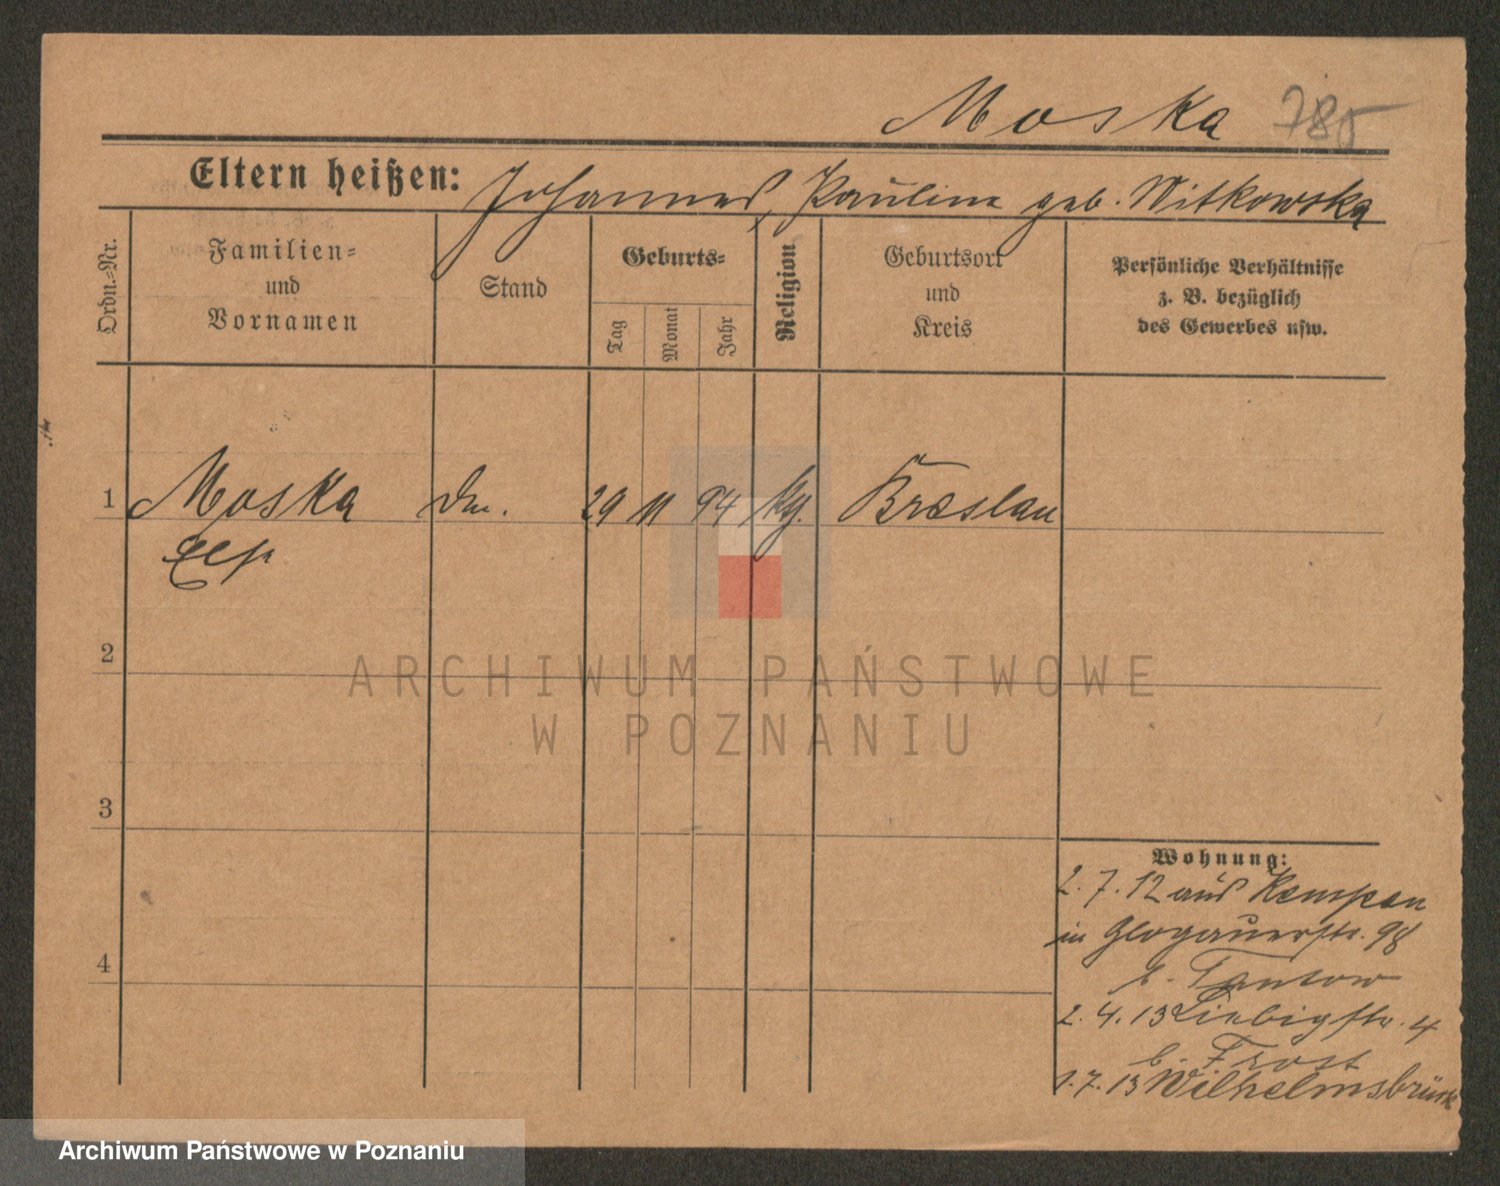 Moska 785
Eltern heißen: Johannes, Pauline geb. Witkowska
Ordn.-Nr.
Familien-
und
Vornamen
Stand
Geburts-
Tag
Monat
Jahr
Religion
Geburtsort
und
Kreis
Persönliche Verhältnisse
z. B. bezüglich
des Gewerbes usw.
1 Moska 29 11 94 Breslau
2
3
4
Wohnung:
2.7.12 aus Kempen
in Glogauerstr. 98
b. Tantow
2.4.13 Liebigstr. 4
b. Frost
1.7.13 Wilhelmsbrück
ARCHIWUM PAŃSTWOWE
W POZNANIU
Archiwum Państwowe w Poznaniu